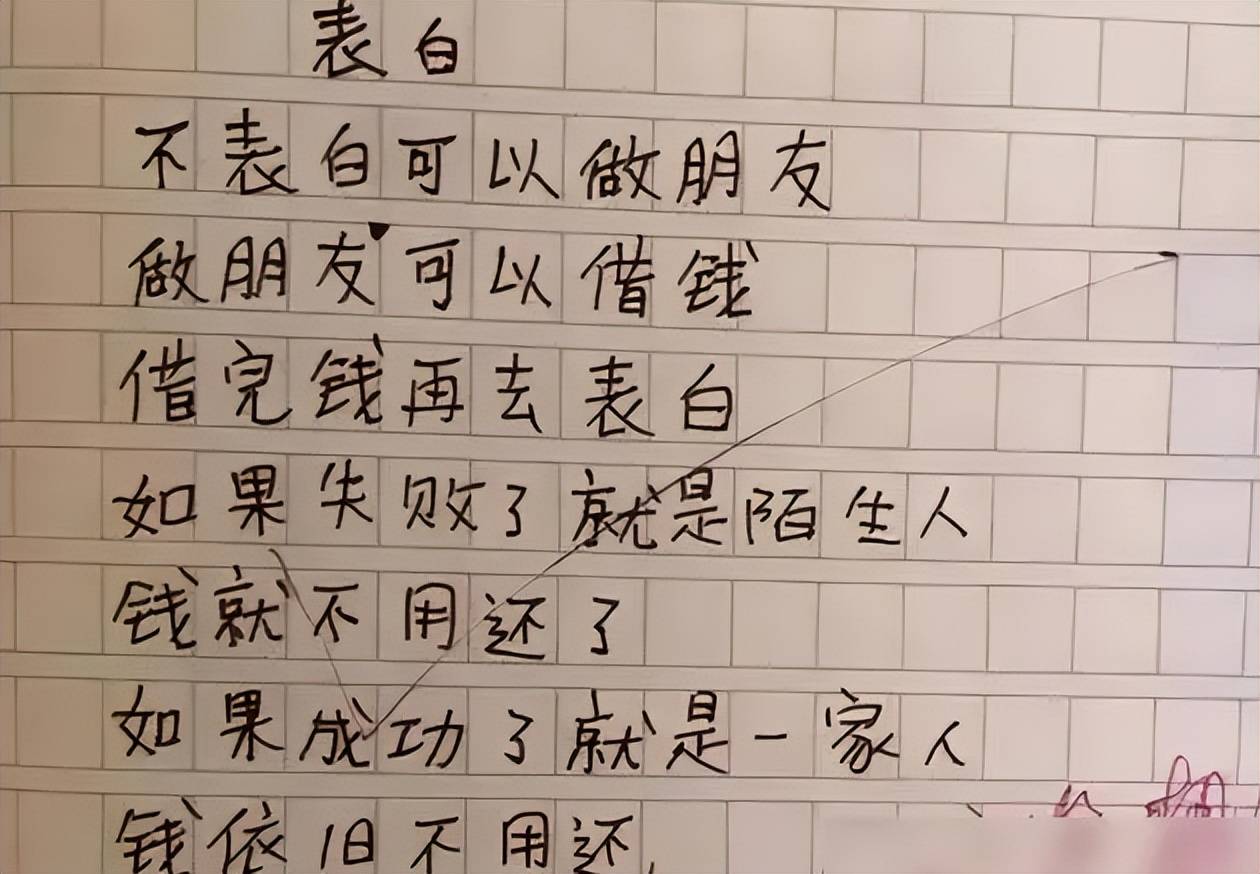 表白
不表白可以做朋友
做朋友可以借钱
借完钱再去表白
如果失败了就是陌生人
钱就不用还了
如果成功了就是一家人
钱依旧不用还.